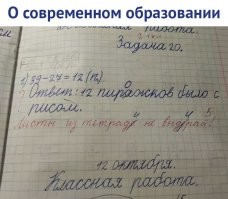 О современном образовании
работа.
Задача 20.
1) 39-27=12 (п.)
Ответ: 12 пирожков было с
рисом.
Листы из тетради не вырывай!
12 октября.
Классная работа.